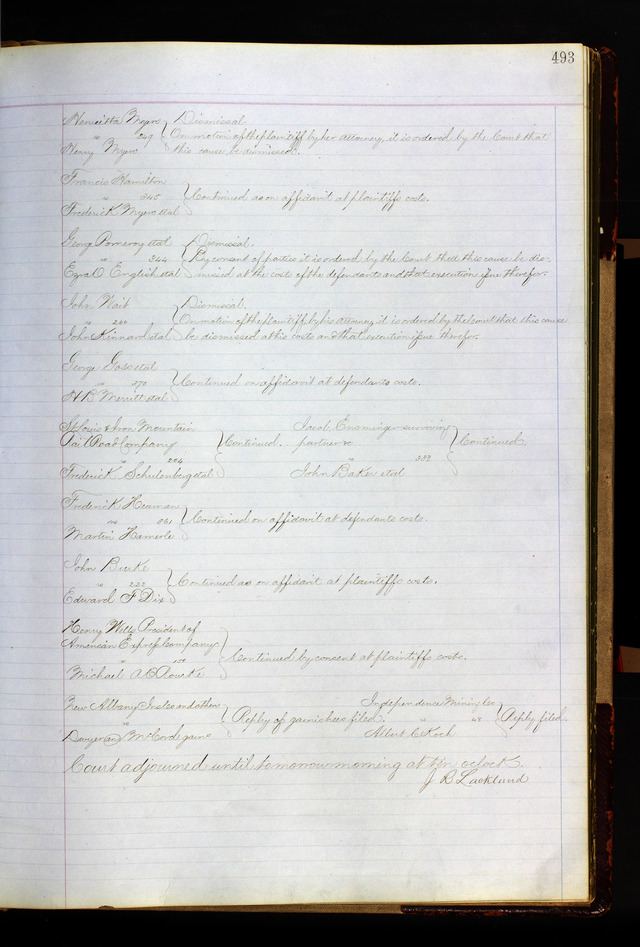 493
Henrietta Myers Dismissal.
vs 249 On motion of the plaintiff by her attorney, it is ordered by the Court that
Henry Myers this cause be dismissed.
Francis Hamilton
vs 345 Continued as on affidavit at plaintiffs costs.
Frederick Myer etal
George Pomeroy etal Dismissal.
vs 344 By consent of parties it is ordered by the Court that this cause be dis-
Ezra O English etal missed at the cost of the defendants and that execution issue therefor.
John Wait Dismissal.
vs On motion of the plaintiff by his Attorney it is ordered by the Court that this cause
John Kinnard etal be dismissed at his costs and that execution issue therefor.
George Goss etal
vs 270 Continued on affidavit at defendants costs.
H B Merritt etal
St Louis & Iron Mountain Jacob Ensminger surviving
Rail Road Company Continued. partner &c Continued.
vs 204 vs 383
Frederick Schulenberg etal John Baker etal
Frederick Heaman
vs 061 Continued on affidavit at defendants costs.
Martin Hamerle
John Burke
vs 232 Continued as on affidavit at plaintiffs costs.
Edward F Dix
Henry Wells President of
American Express Company
vs Continued by consent at plaintiffs costs.
Michael A O'Rourke
New Albany Ins Co and others Independence Mining Co
vs Reply of garnishees filed. vs 48 Reply filed.
and Albert C Koch
Court adjourned until tomorrow morning at ten oclock.
J R Lackland